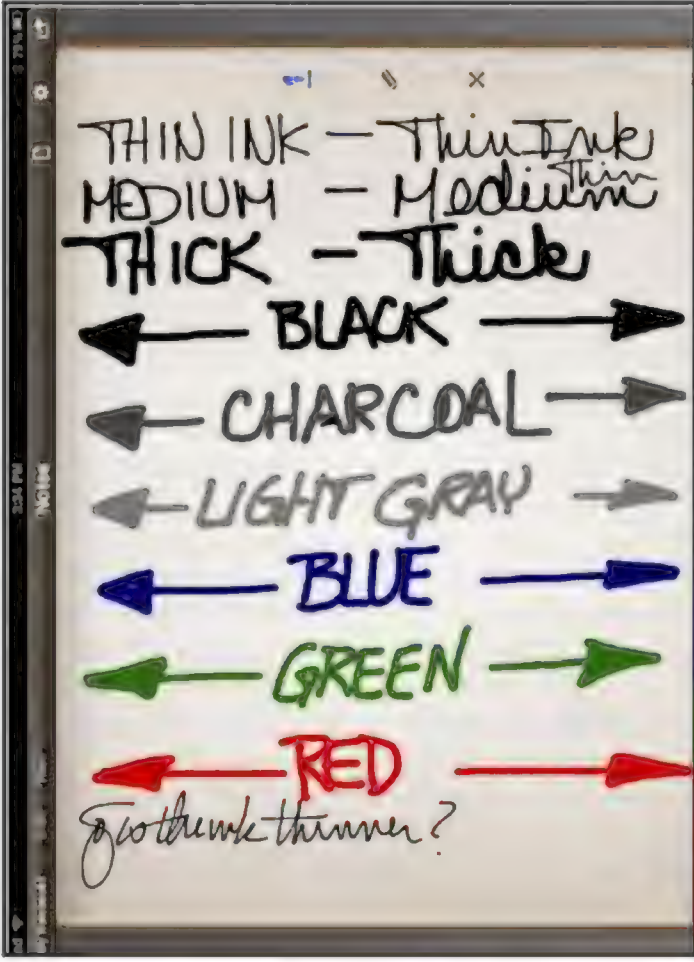 THIN INK – Thin Ink
MEDIUM – Medium Thin
THICK – Thick
BLACK
CHARCOAL
LIGHT GRAY
BLUE
GREEN
RED
thinner?
79%
3:34 PM